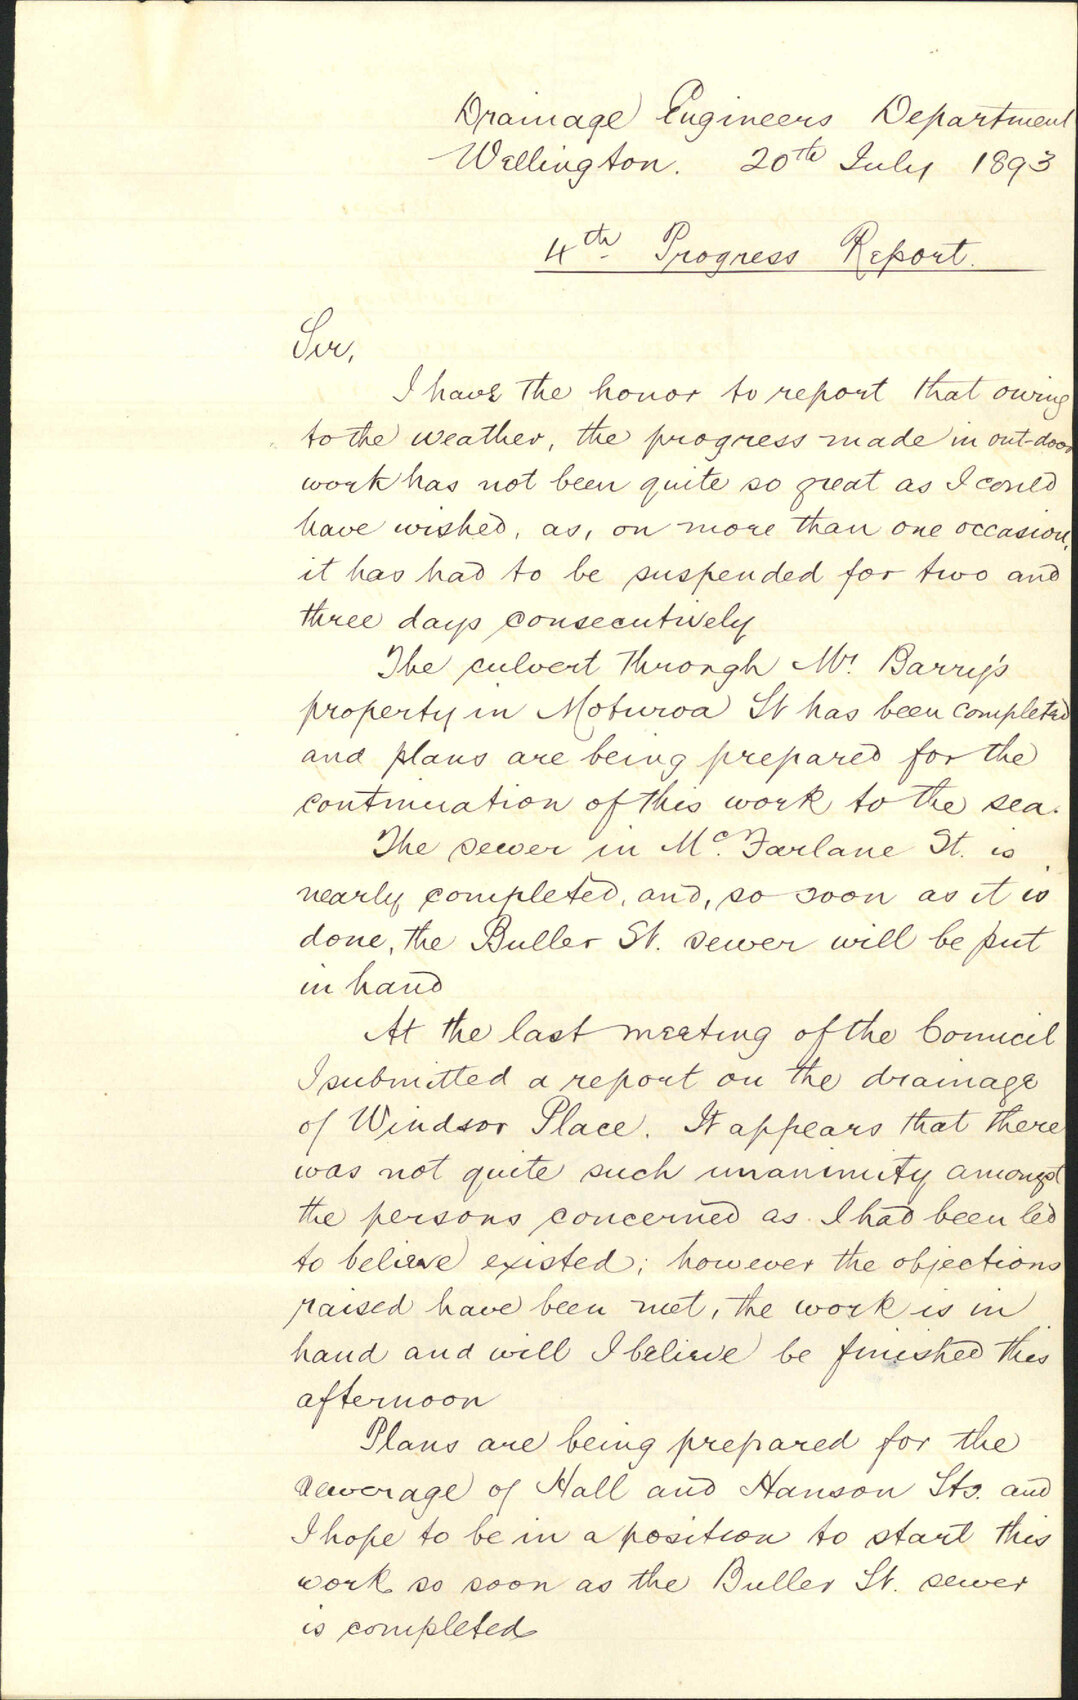 Drainage Engineers Department
Wellington. 20th July 1893
4th Progress Report.
Sir,
I have the honor to report that owing
to the weather, the progress made in out-door
work has not been quite so great as I could
have wished, as, on more than one occasion,
it has had to be suspended for two and
three days consecutively
The culvert through Mr. Barry's
property in Moturoa St has been completed
and plans are being prepared for the
continuation of this work to the sea.
The sewer in Mc. Farlane St. is
nearly completed, and, so soon as it is
done, the Buller St. sewer will be put
in hand
At the last meeting of the Council
I submitted a report on the drainage
of Windsor Place. It appears that there
was not quite such unanimity amongst
the persons concerned as I had been led
to believe existed; however the objections
raised have been met, the work is in
hand and will I believe be finished this
afternoon
Plans are being prepared for the
sewerage of Hall and Hanson Sts. and
I hope to be in a position to start this
work so soon as the Buller St. sewer
is completed